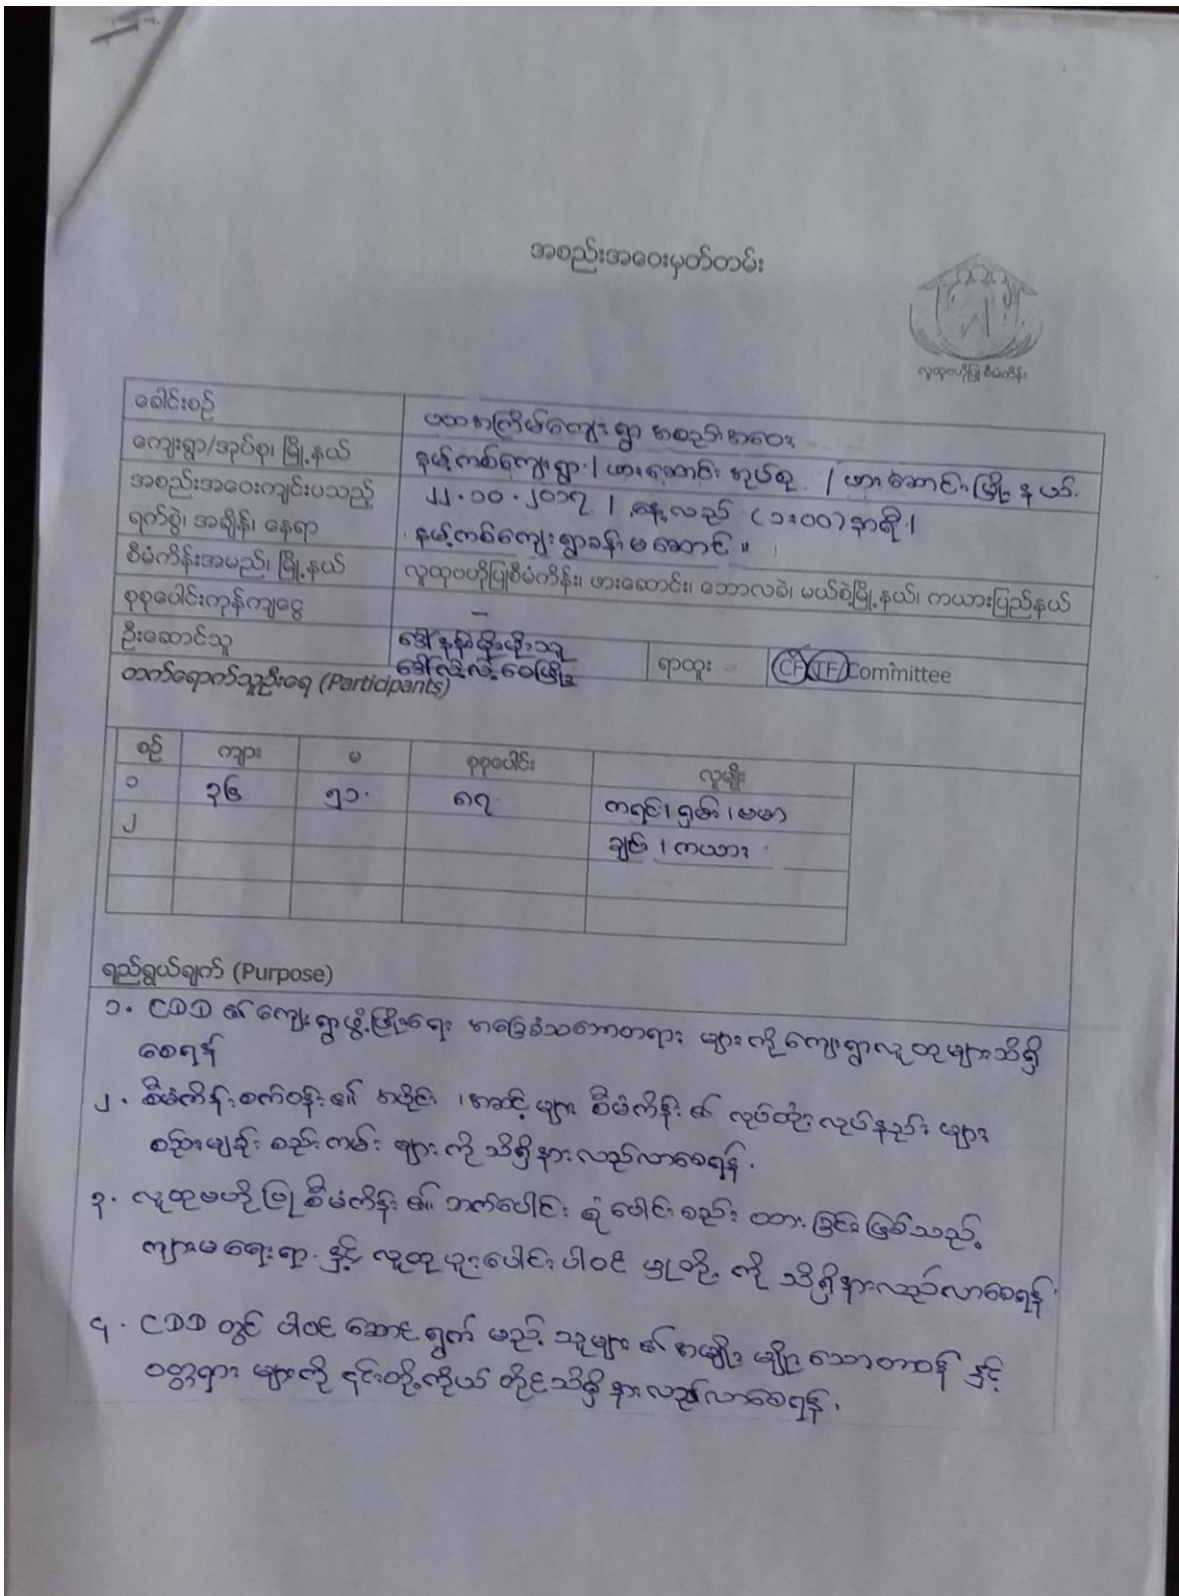 အစည်းအဝေးမှတ်တမ်း
လူထုဗဟိုပြု စီမံကိန်း
ခေါင်းစဉ် ပထမအကြိမ်ကျေးရွာ အစည်းအဝေး
ကျေးရွာ/အုပ်စု၊ မြို့နယ် နမ့်ကစ်ကျေးရွာ၊ ဖားဆောင်း အုပ်စု / ဖားဆောင်းမြို့နယ်
အစည်းအဝေးကျင်းပသည့် ၂၂.၁၀.၂၀၁၇ ၊ နေ့လည် (၁း၀၀) နာရီ ၊
ရက်စွဲ၊ အချိန်၊ နေရာ နမ့်ကစ်ကျေးရွာခန်းမဆောင် ။
စီမံကိန်းအမည်၊ မြို့နယ် လူထုဗဟိုပြုစီမံကိန်း၊ ဖားဆောင်း၊ ဘောလခဲ၊ မယ်စဲ့မြို့နယ်၊ ကယားပြည်နယ်
စုစုပေါင်းကုန်ကျငွေ –
ဦးဆောင်သူ ဒေါ်နန်းမိုးမိုးသူ
ဒေါ်လဲ့လဲ့ဝေဖြိုး ရာထူး CF/TF/Committee
တက်ရောက်သူဦးရေ (Participants)
စဉ် ကျား မ စုစုပေါင်း လူမျိုး
၁ ၃၆ ၅၁ ၈၇ ကရင်၊ ရှမ်း ၊ ဗမာ
၂ ချင်း ၊ ကယား
ရည်ရွယ်ချက် (Purpose)
၁. CDD ၏ ကျေးရွာဖွံ့ဖြိုးရေး အခြေခံသဘောတရား များကို ကျေးရွာလူထုများသိရှိ
စေရန်
၂. စီမံကိန်းစက်ဝန်း၏ အပိုင်း ၊ အဆင့်များ စီမံကိန်း၏ လုပ်ထုံးလုပ်နည်း များ
စည်းမျဉ်း စည်းကမ်း များ ကို သိရှိနားလည်လာစေရန်.
၃. လူထုဗဟိုပြုစီမံကိန်း ၏ ဘက်ပေါင်းစုံ ပေါင်းစည်း ထားခြင်းဖြစ်သည့်
ကျားမရေးရာ နှင့် လူထုပူးပေါင်းပါဝင် မှုတို့ ကို သိရှိနားလည်လာစေရန်
၄. CDD တွင် ပါဝင် ဆောင်ရွက် မည့် သူများ ၏ အမျိုးမျိုးသောတာဝန် နှင့်
ဝတ္တရား များကို ၎င်းတို့ကိုယ် တိုင်သိရှိ နားလည်လာစေရန်.